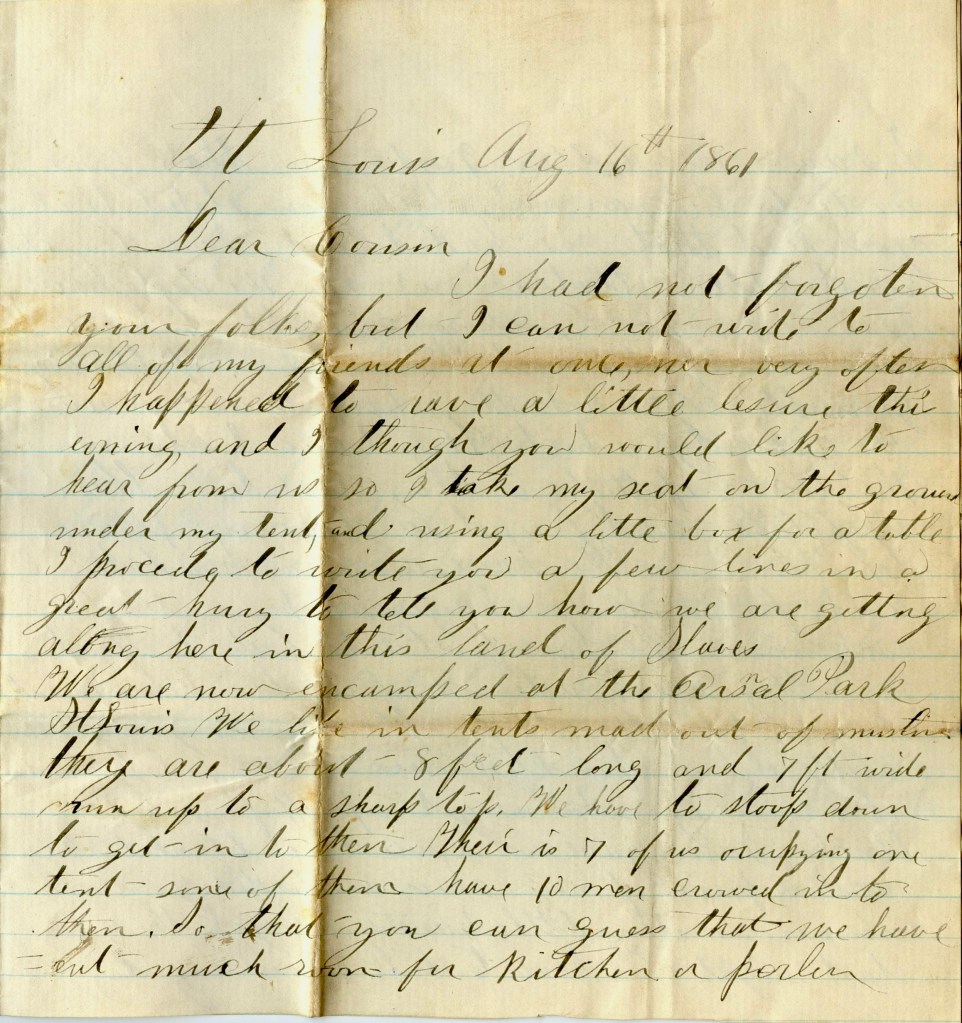 St Louis Aug 16th 1861
Dear Cousin
I had not forgoten
your folks, but I can not write to
all of my friends at once, nor very often
I happened to have a little lesure this
evning and I though you would like to
hear from us so I take my seat on the ground
under my tent, and using a litte box for a table
I procede to write you a few lines in a
great hury to tell you how we are getting
along here in this land of Slaves
We are now encamped at the Arsnal Park
St Louis We live in tents mad out of muslin
they are about 8 feet long and 7 ft wide
run up to a sharp top. We have to stoop down
to get in to them Their is 7 of us ocupying one
tent some of them have 10 men crowed in to
them. So that you can guess that we have
-ent much room for Kitchen or parler